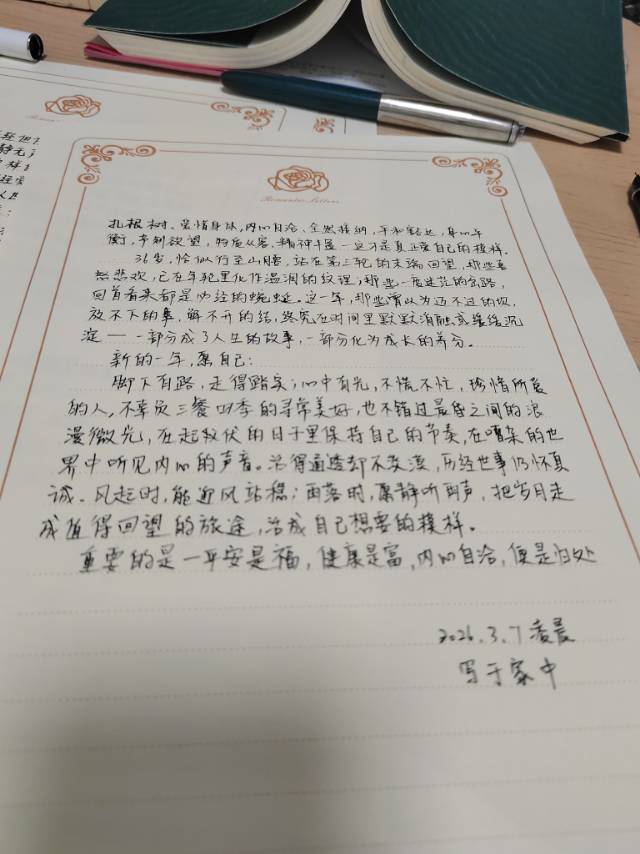 Romantic Letters
扎根树。爱惜身体,内心自洽、全然接纳,平和豁达,身心平
衡,节制欲望,物质从容,精神丰盈—这才是真正爱自己的模样。
36岁,恰似行至山腰,站在第三轮的末端回望,那些喜
怒悲欢,已在年轮里化作温润的纹理;那些一度迷茫的岔路,
回首看来都是必经的蜿蜒。这一年,那些曾以为迈不过的坎,
放不下的事,解不开的结,终究在时间里默默消融或缓缓沉
淀——一部分成了人生的故事,一部分化为成长的养分。
新的一年,愿自己:
脚下有路,走得踏实;心中有光,不慌不忙,珍惜所爱
的人,不辜负三餐四季的寻常美好,也不错过晨昏之间的浪
漫微光,在起落伏的日子里保持自己的节奏,在嘈杂的世
界中听见内心的声音。活得通透却不淡漠,历经世事仍怀真
诚。风起时,能迎风站稳;雨落时,愿静听雨声,把岁月走
成值得回望的旅途,活成自己想要的模样。
重要的是—平安是福,健康是富,内心自洽,便是归处
2026.3.7 凌晨
写于家中